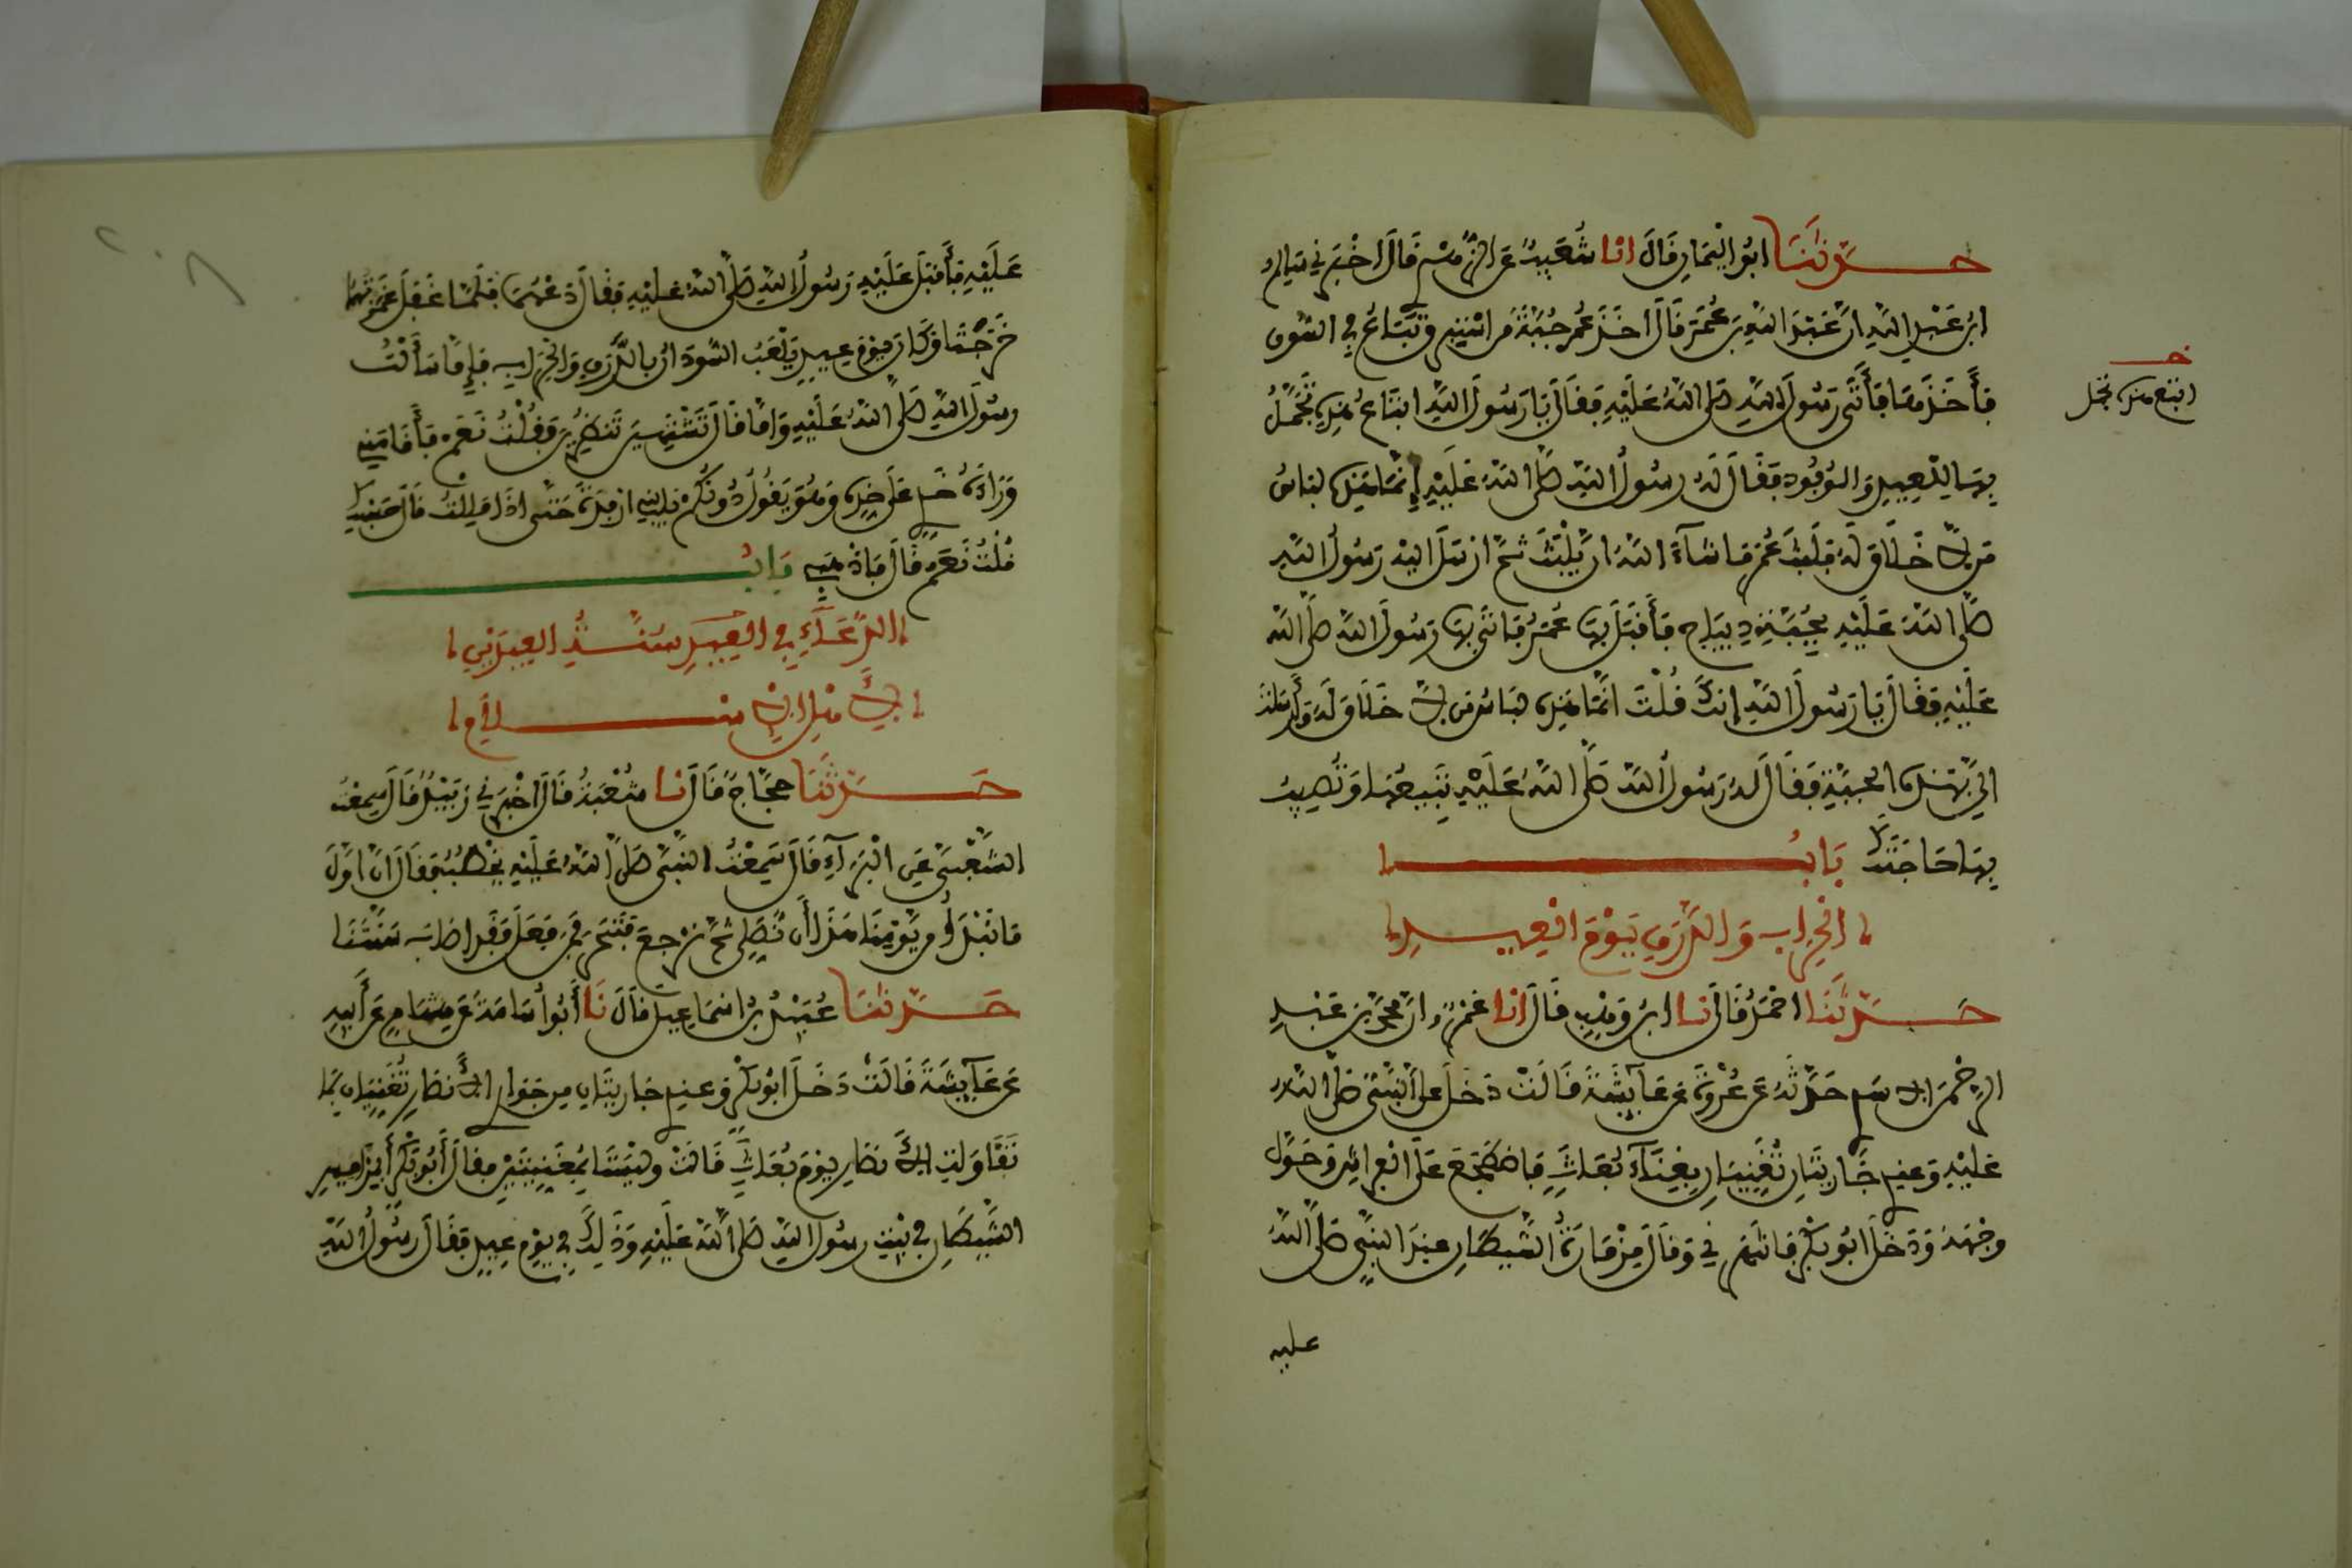 حدثنا ابو اليمان قال انا شعيب عن الزهري قال اخبرني سالم
ابن عبد الله ان عبد الله بن عمر قال اخذ عمر جبة من استبرق تباع في السوق
فأخذها فأتى رسول الله صلى الله عليه فقال يا رسول الله ابتاع هذه تجمل
ابتع هذه تجمل
بها للعيد والوفود فقال له رسول الله صلى الله عليه إنما هذه لباس
من لا خلاق له فلبث عمر ما شاء الله ان يلبث ثم ارسل اليه رسول الله
صلى الله عليه بجبة ديباج فأقبل بها عمر فاتى بها رسول الله صلى الله
عليه فقال يا رسول الله إنك قلت انما هذه لباس من لا خلاق له وأرسلت
الي بهذه الجبة فقال له رسول الله صلى الله عليه تبيعها وتصيب
بها حاجتك باب
الحراب والدرق يوم العيد
حدثنا احمد قال نا ابن وهب قال انا عمرو ان محمد بن عبد
الرحمن الاسدي حدثه عن عروة عن عائشة قالت دخل علي النبي صلى الله
عليه وعندي جاريتان تغنيان بغناء بعاث فاضطجع على الفراش وحول
وجهه ودخل ابو بكر فانتهرني وقال مزمارة الشيطان عند النبي صلى الله
عليه
عليه فأقبل عليه رسول الله صلى الله عليه فقال دعهما فلما غفل غمزتهما
خرجتا وكان يوم عيد يلعب السودان بالدرق والحراب فإما سألت
رسول الله صلى الله عليه واما قال تشتهين تنظرين فقلت نعم فأقامني
وراءه خدي على خده وهو يقول دونكم يا بني ارفدة حتى اذا مللت قال حسبك
قلت نعم قال فاذهبي باب
الدعاء في العيد سنة العيدين
لأهل الاسلام
حدثنا حجاج قال نا شعبة قال اخبرني زبيد قال سمعت
الشعبي عن البراء قال سمعت النبي صلى الله عليه يخطب فقال ان اول
ما نبدأ من يومنا هذا أن نصلي ثم نرجع فننحر فمن فعل فقد اصاب سنتنا
حدثنا عبيد بن اسماعيل قال نا أبو أسامة عن هشام عن أبيه
عن عائشة قالت دخل ابو بكر وعندي جاريتان من جوار الأنصار تغنيان بما
تقاولت الأنصار يوم بعاث قالت وليستا بمغنيتين فقال أبو بكر أبمزامير
الشيطان في بيت رسول الله صلى الله عليه وذلك في يوم عيد فقال رسول الله